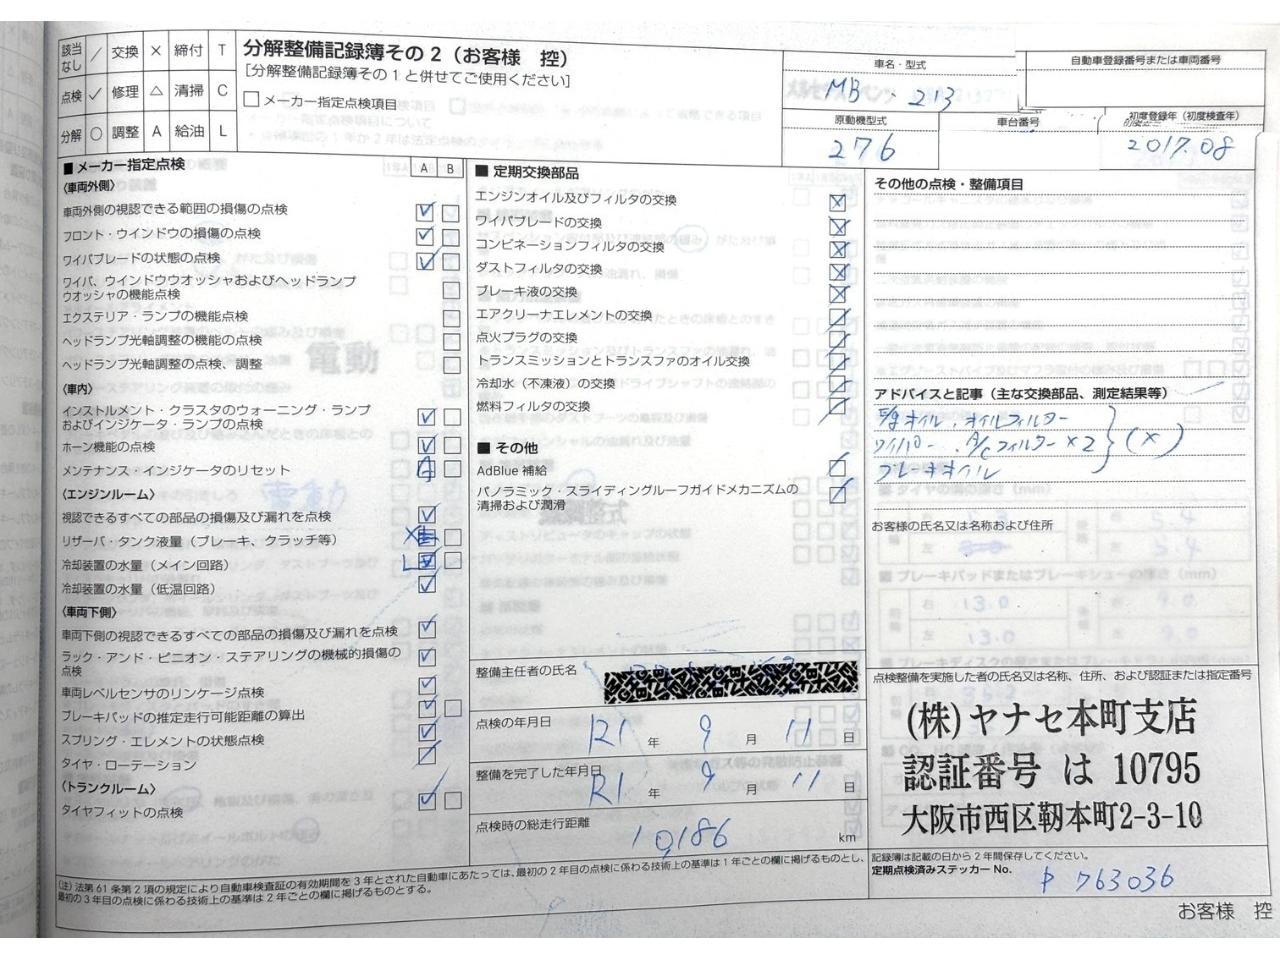 該当なし ／ 交換 × 締付 T
点検 ✓ 修理 △ 清掃 C
分解 ○ 調整 A 給油 L
分解整備記録簿その2（お客様 控）
[分解整備記録簿その1と併せてご使用ください]
□メーカー指定点検項目
車名・型式
MB - 213
自動車登録番号または車両番号
原動機型式
276
車台番号
初度登録年（初度検査年）
2017.08
■メーカー指定点検
A B
〈車両外側〉
車両外側の視認できる範囲の損傷の点検
フロント・ウインドウの損傷の点検
ワイパブレードの状態の点検
ワイパ、ウインドウウオッシャおよびヘッドランプ
ウオッシャの機能点検
エクステリア・ランプの機能点検
ヘッドランプ光軸調整の機能の点検
ヘッドランプ光軸調整の点検、調整
〈車内〉
インストルメント・クラスタのウォーニング・ランプ
およびインジケータ・ランプの点検
ホーン機能の点検
メンテナンス・インジケータのリセット
〈エンジンルーム〉
視認できるすべての部品の損傷及び漏れを点検
リザーバ・タンク液量（ブレーキ、クラッチ等）
冷却装置の水量（メイン回路）
冷却装置の水量（低温回路）
〈車両下側〉
車両下側の視認できるすべての部品の損傷及び漏れを点検
ラック・アンド・ピニオン・ステアリングの機械的損傷の
点検
車両レベルセンサのリンケージ点検
ブレーキパッドの推定走行可能距離の算出
スプリング・エレメントの状態点検
タイヤ・ローテーション
〈トランクルーム〉
タイヤフィットの点検
■ 定期交換部品
エンジンオイル及びフィルタの交換
ワイパブレードの交換
コンビネーションフィルタの交換
ダストフィルタの交換
ブレーキ液の交換
エアクリーナエレメントの交換
点火プラグの交換
トランスミッションとトランスファのオイル交換
冷却水（不凍液）の交換
燃料フィルタの交換
■ その他
AdBlue 補給
パノラミック・スライディングルーフガイドメカニズムの
清掃および潤滑
整備主任者の氏名
点検の年月日
R1 年 9 月 11 日
整備を完了した年月日
R1 年 9 月 11 日
点検時の総走行距離
10,186 km
その他の点検・整備項目
アドバイスと記事（主な交換部品、測定結果等）
オイル、オイルフィルター
ワイパー、A/Cフィルター×2 （×）
ブレーキオイル
お客様の氏名又は名称および住所
点検整備を実施した者の氏名又は名称、住所、および認証または指定番号
(株)ヤナセ本町支店
認証番号 は 10795
大阪市西区靭本町2-3-10
記録簿は記載の日から2年間保存してください。
定期点検済みステッカー No. P 763036
（注）法第61条第2項の規定により自動車検査証の有効期間を3年とされた自動車にあたっては、最初の2年目の点検に係わる技術上の基準は1年ごとの欄に掲げるものとし、
最初の3年目の点検に係わる技術上の基準は2年ごとの欄に掲げるものとする。
お客様 控